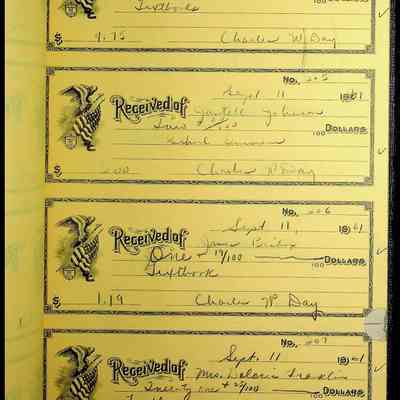 Textbooks
100 DOLLARS
$ 9.75 Charles W Day
No. 205
Sept 11 1961
Received of Johnson
Two no/100
100 DOLLARS
$ 2.00 Charles W Day
No. 206
Sept 11, 1961
Received of Jane
One 19/100
100 DOLLARS
Textbook
$ 1.19 Charles W. Day
No. 207
Sept. 11 1961
Received of Mrs. Franklin
Twenty one + 25/100
100 DOLLARS